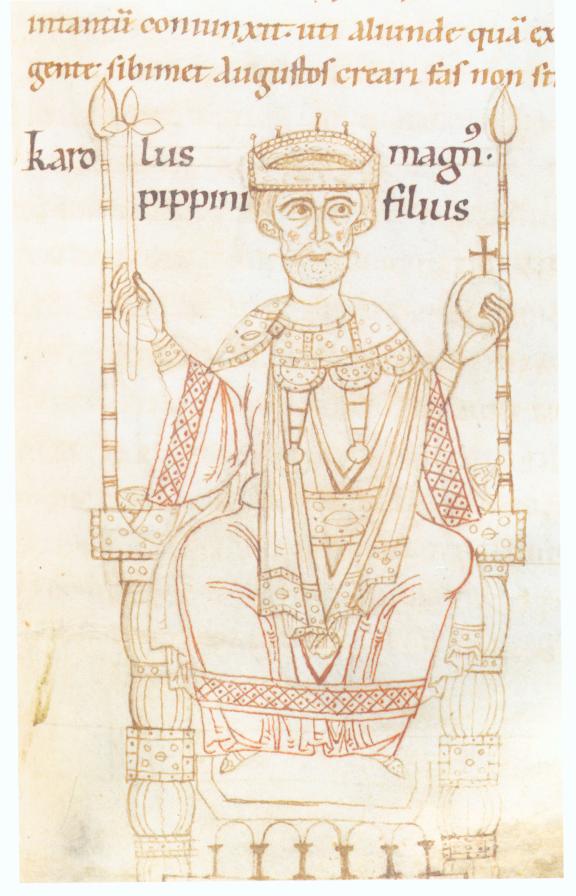 intantū coniunxit· uti aliunde quā ex
gente sibimet Augustos creari fas non
karo lus magn⁹·
pippini filius